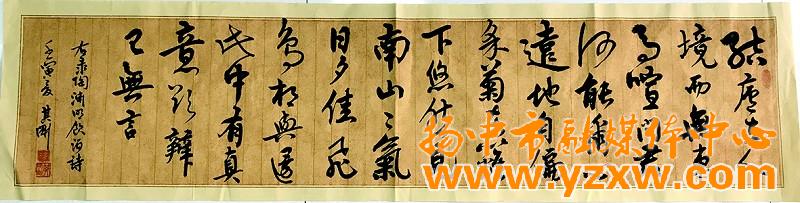 結廬在人
境而無車
馬喧問君
何能爾心
遠地自偏
采菊東籬
下悠然見
南山々氣
日夕佳飛
鳥相與還
此中有真
意欲辯
已無言
右录陶渊明飲酒詩
壬寅夏
扬中市融媒体中心
www.yzxw.com